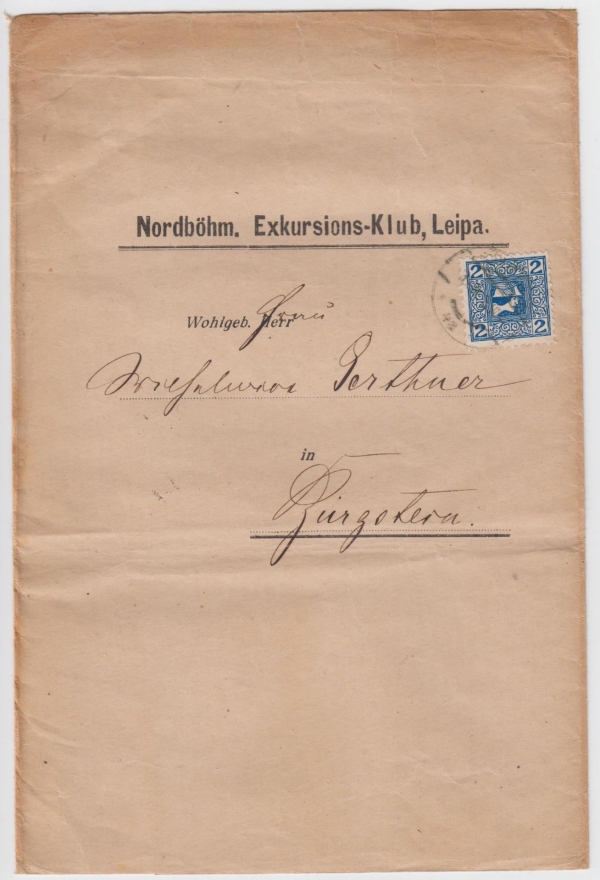 Nordböhm. Exkursions-Klub, Leipa.
2 2
2 2
Wohlgeb. Herr Frau
Wilhelmine Perthner
in
Bürgstein.